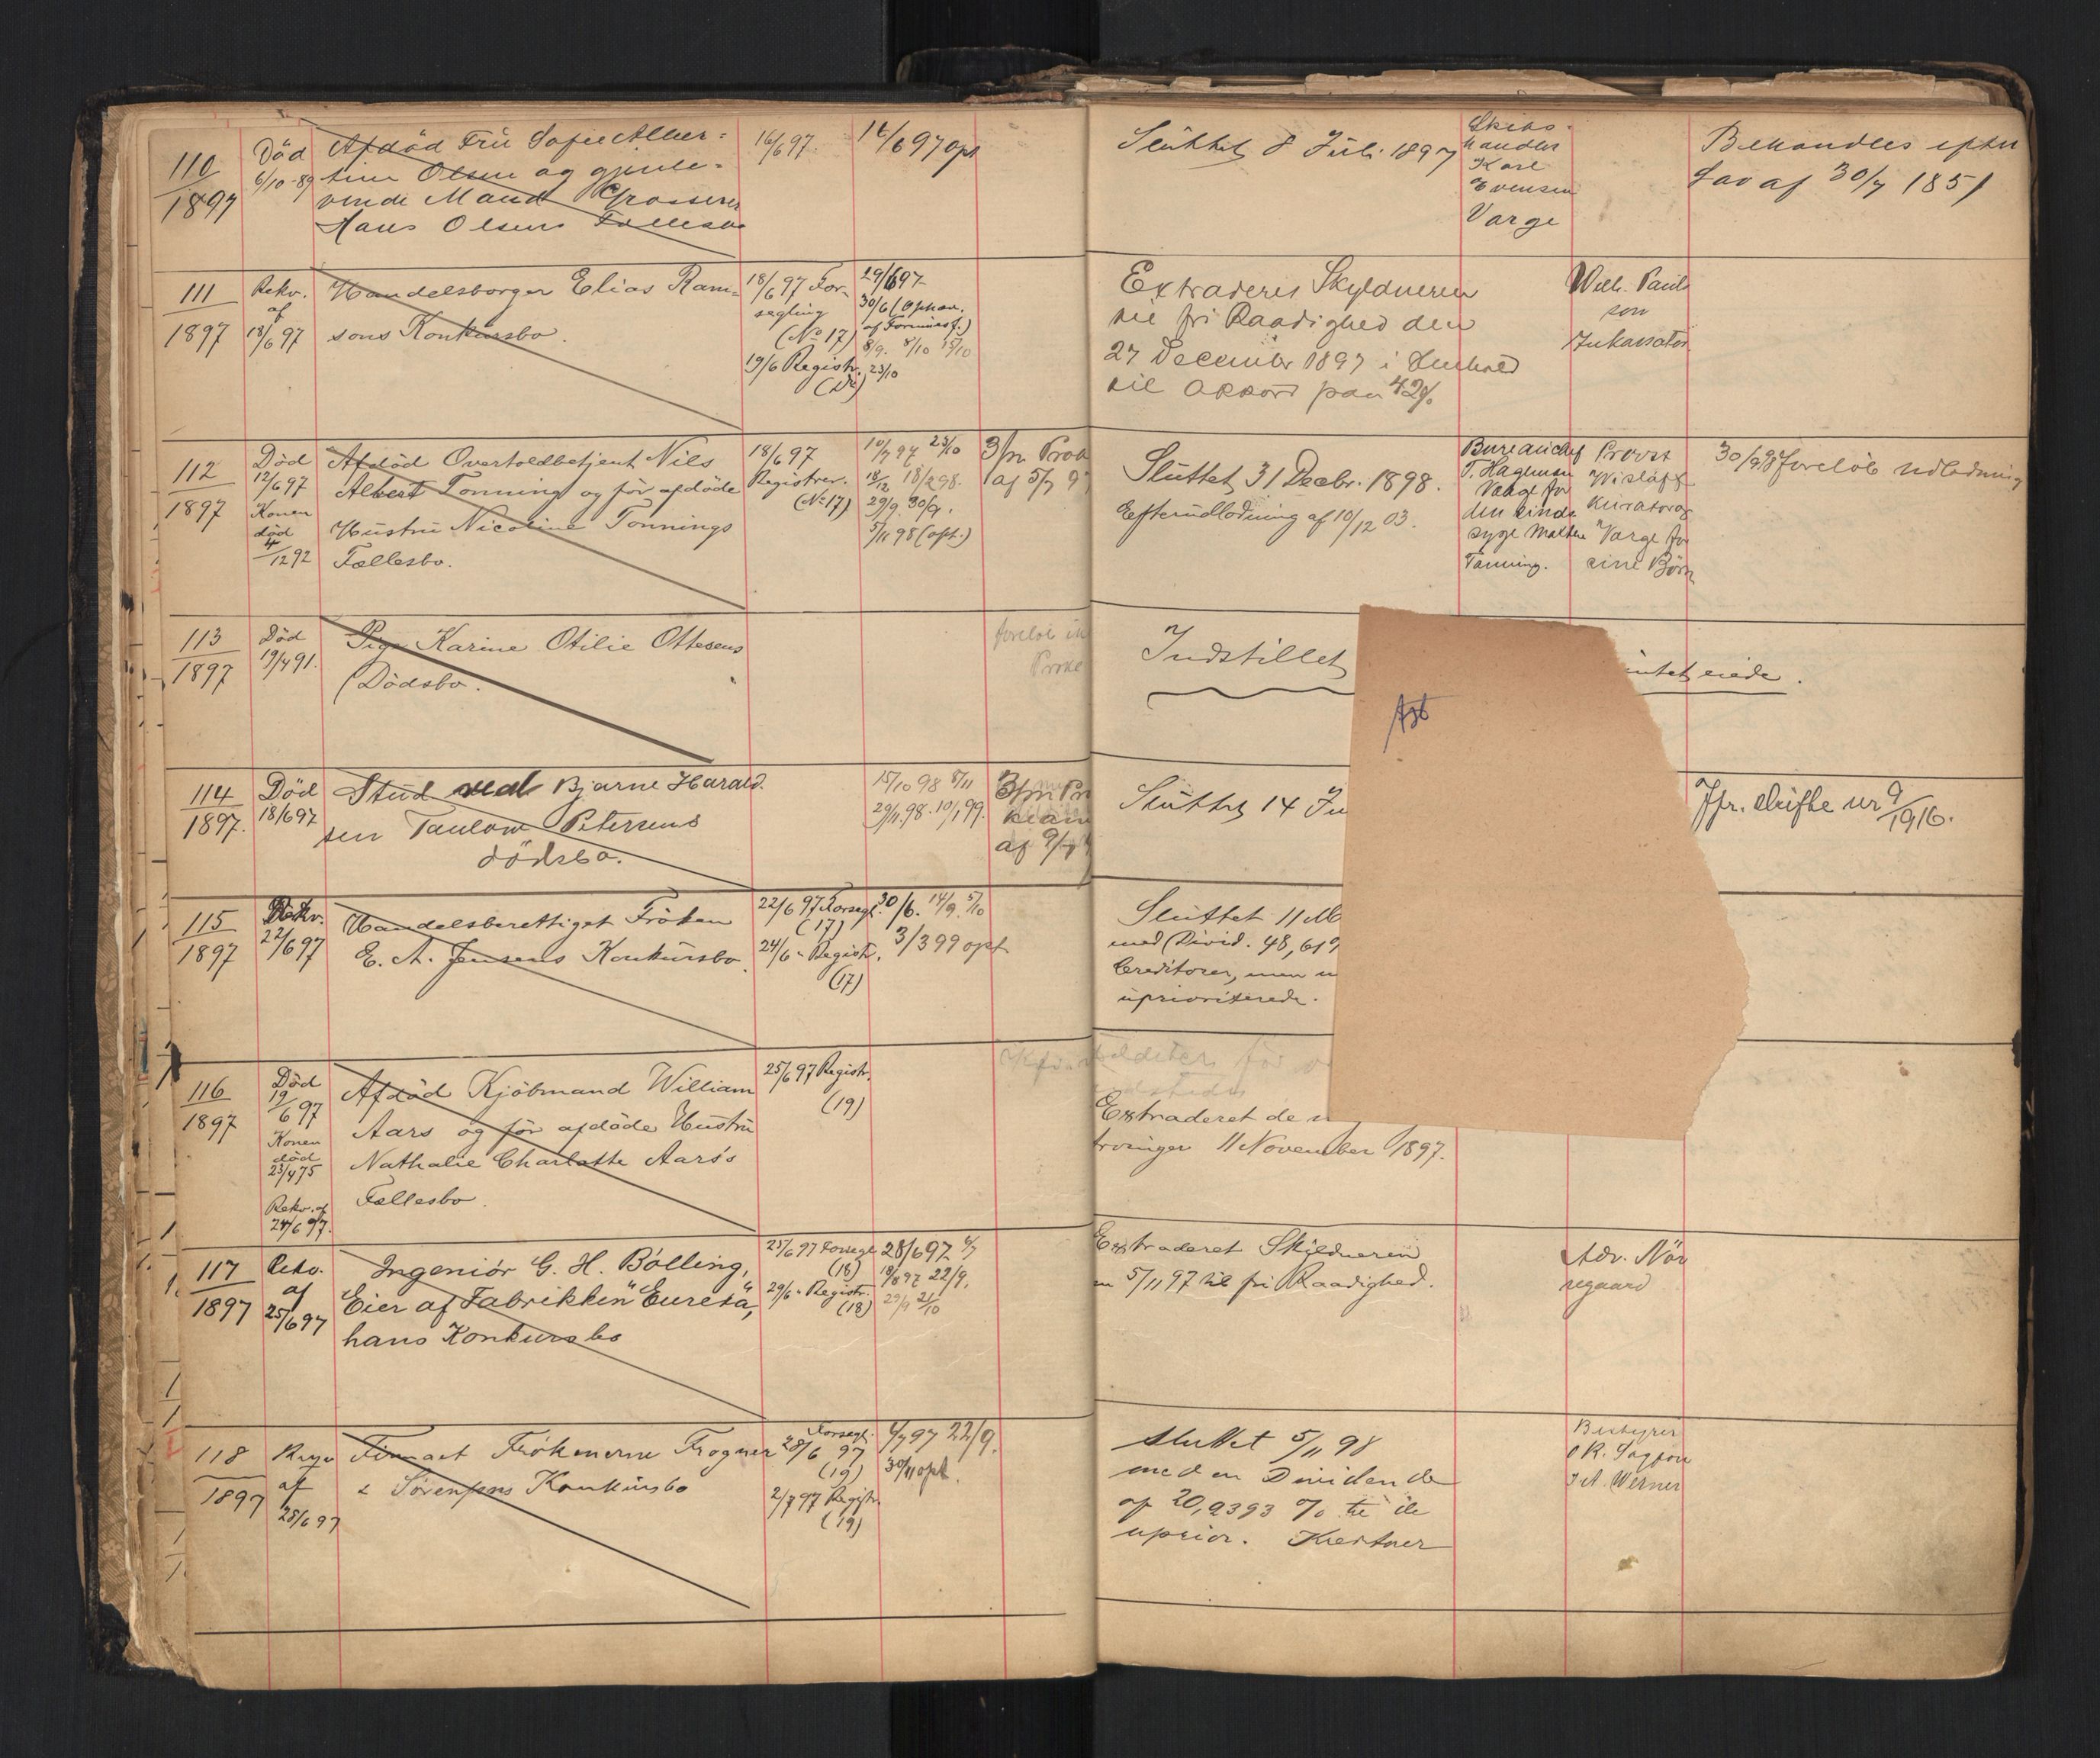 110
1897
Död
6/10-89
Afdöd Frü Sofie Alber-
tine Olsen og gjenle-
vende Mand Grosserer
Hans Olsens Fællesbo
16/6 97.
16/6 97 opt
Slüttet 8 Jüli 1897
Skibs-
handler
Karl
Evensen
Varge
Behandles efter
Lov af 30/7 1851
111
1897
Rekv.
af
18/6 97
Handelsborger Elias Ram-
sons Konkürsbo.
18/6 97 For-
segling
(No 17)
19/6 Registr.
29/6 97
30/6 (Ophæv.
af Forminsk.)
8/9. 8/10 15/10
23/10
Extraderes Skyldneren
til fri Raadighed den
27 December 1897 i Henhold
til Akkord paa 42%.
Wilh. Paul-
son
Inkassator
112
1897
Död
12/6 97
Konen
död
4/12 92
Afdöd Overtoldbetjent Nils
Albert Tonning og för afdöde
Hüstrü Nicoline Tonnings
Fællesbo.
18/6 97
Registrer.
(No 17)
10/7 97 23/10
18/12 18/2 98.
29/9. 30/9.
5/11 98 (opt.)
3/m Prok
af 5/7 97
Slüttet 31 Decbr. 1898.
Efterüdlodning af 10/12 03.
Bureauchef
T. Hagemann
Varge for
den sinds-
syge Malthe
Tonning.
Provst
Wisløff
Kurator og
Varge for
sine Börn
30/9 98 foreløb. Udlodning
113
1897
Död
19/4 91.
Pige Karine Otilie Ottesens
Dödsbo.
foreløb in
Indstillet
intet eiede.
Ast
114
1897.
Död
18/6 97
Stud med Bjarne Harald-
sen Taulow Petersens
dödsbo.
15/10 98 8/11
29/11.98. 10/1 99.
3/m Pr
klam
af 9/7
Slüttet 14 Ju
Jfr. skifte nr 9/1916.
115
1897
Rekv.
22/6 97
Handelsberettiget Fröken
E. A. Jensens Konkürsbo.
22/6 97 Forsegl.
(17)
24/6 - Registr.
(17)
30/6. 14/9. 5/10
3/3 99 opt.
Slüttet 11 M
med Divid. 48,619
Creditorer, men u
üprioriterede.
116
1897
Död
19/6 97
Konen
död
23/4 75
Rekv. af
24/6 97.
Afdöd Kjöbmand William
Aars og för afdöde Hüstrü
Nathalie Charlotte Aars's
Fællesbo.
25/6 97 Registr.
(19)
Extraderet de m
arvinger 11 November 1897.
117
1897
Rekv.
af
25/6 97
Ingeniør G. H. Bölling,
Eier af Fabrikken "Eureka",
hans Konkursbo
25/6 97 Forsegl.
(18)
29/6 - Registr.
(18)
28/6 97. 6/7
18/8 97 22/9.
29/9 21/10
Extraderet Skyldneren
den 5/11 97 til fri Raadighed.
Adv. Nör-
regaard
118
1897
Rekv
af
28/6 97
Firmaet Frökenerne Frogner
& Sörensens Konkürsbo
Forsegl.
28/6 97
(19)
2/7 97 Registr.
(19)
6/7 97 22/9.
30/11 opt.
sluttet 5/11 98
med en Dividende
af 20,9393 % til de
uprior. Kreditorer
Bestyrer
O R.
I. A. Werner